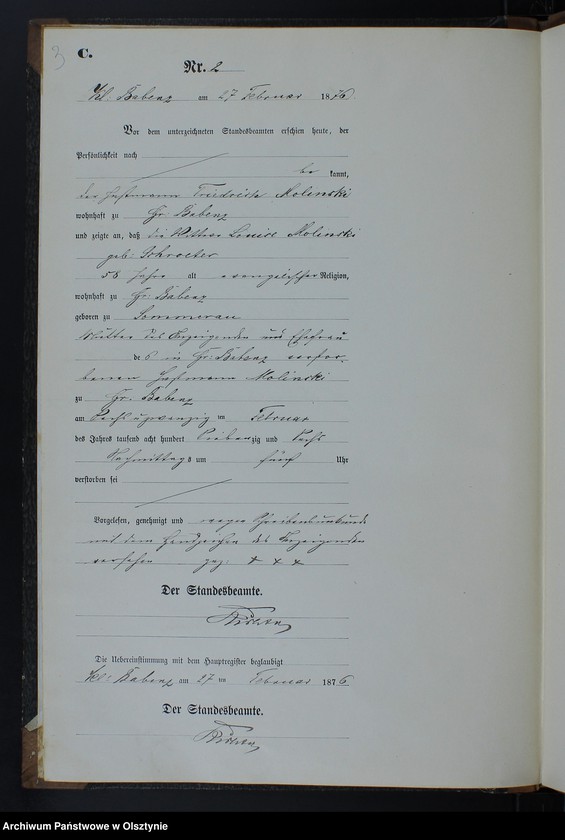 3
C.
Nr. 2
Kl: Babenz am 27 Februar 1876
Vor dem unterzeichneten Standesbeamten erschien heute, der
Persönlichkeit nach
be kannt,
der Instmann Friedrich Molinski
wohnhaft zu Gr: Babenz
und zeigte an, daß die Wittwe Louise Molinski
geb: Schroeter
56 Jahre alt evangelischer Religion,
wohnhaft zu Gr: Babenz
geboren zu Sommerau
Mutter des Anzeigenden und Ehefrau
des in Gr: Babenz verstor-
benen Instmann Molinski
zu Gr. Babenz
am Sechsundzwanzig ten Februar
des Jahres tausend acht hundert Siebenzig und Sechs
Nachmittags um fünf Uhr
verstorben sei
Vorgelesen, genehmigt und wegen Schreibensunkunde
mit dem Handzeichen des Anzeigenden
versehen gez: + x x
Der Standesbeamte.
Die Uebereinstimmung mit dem Hauptregister beglaubigt
Kl: Babenz am 27 ten Februar 1876
Der Standesbeamte.
Archiwum Państwowe w Olsztynie